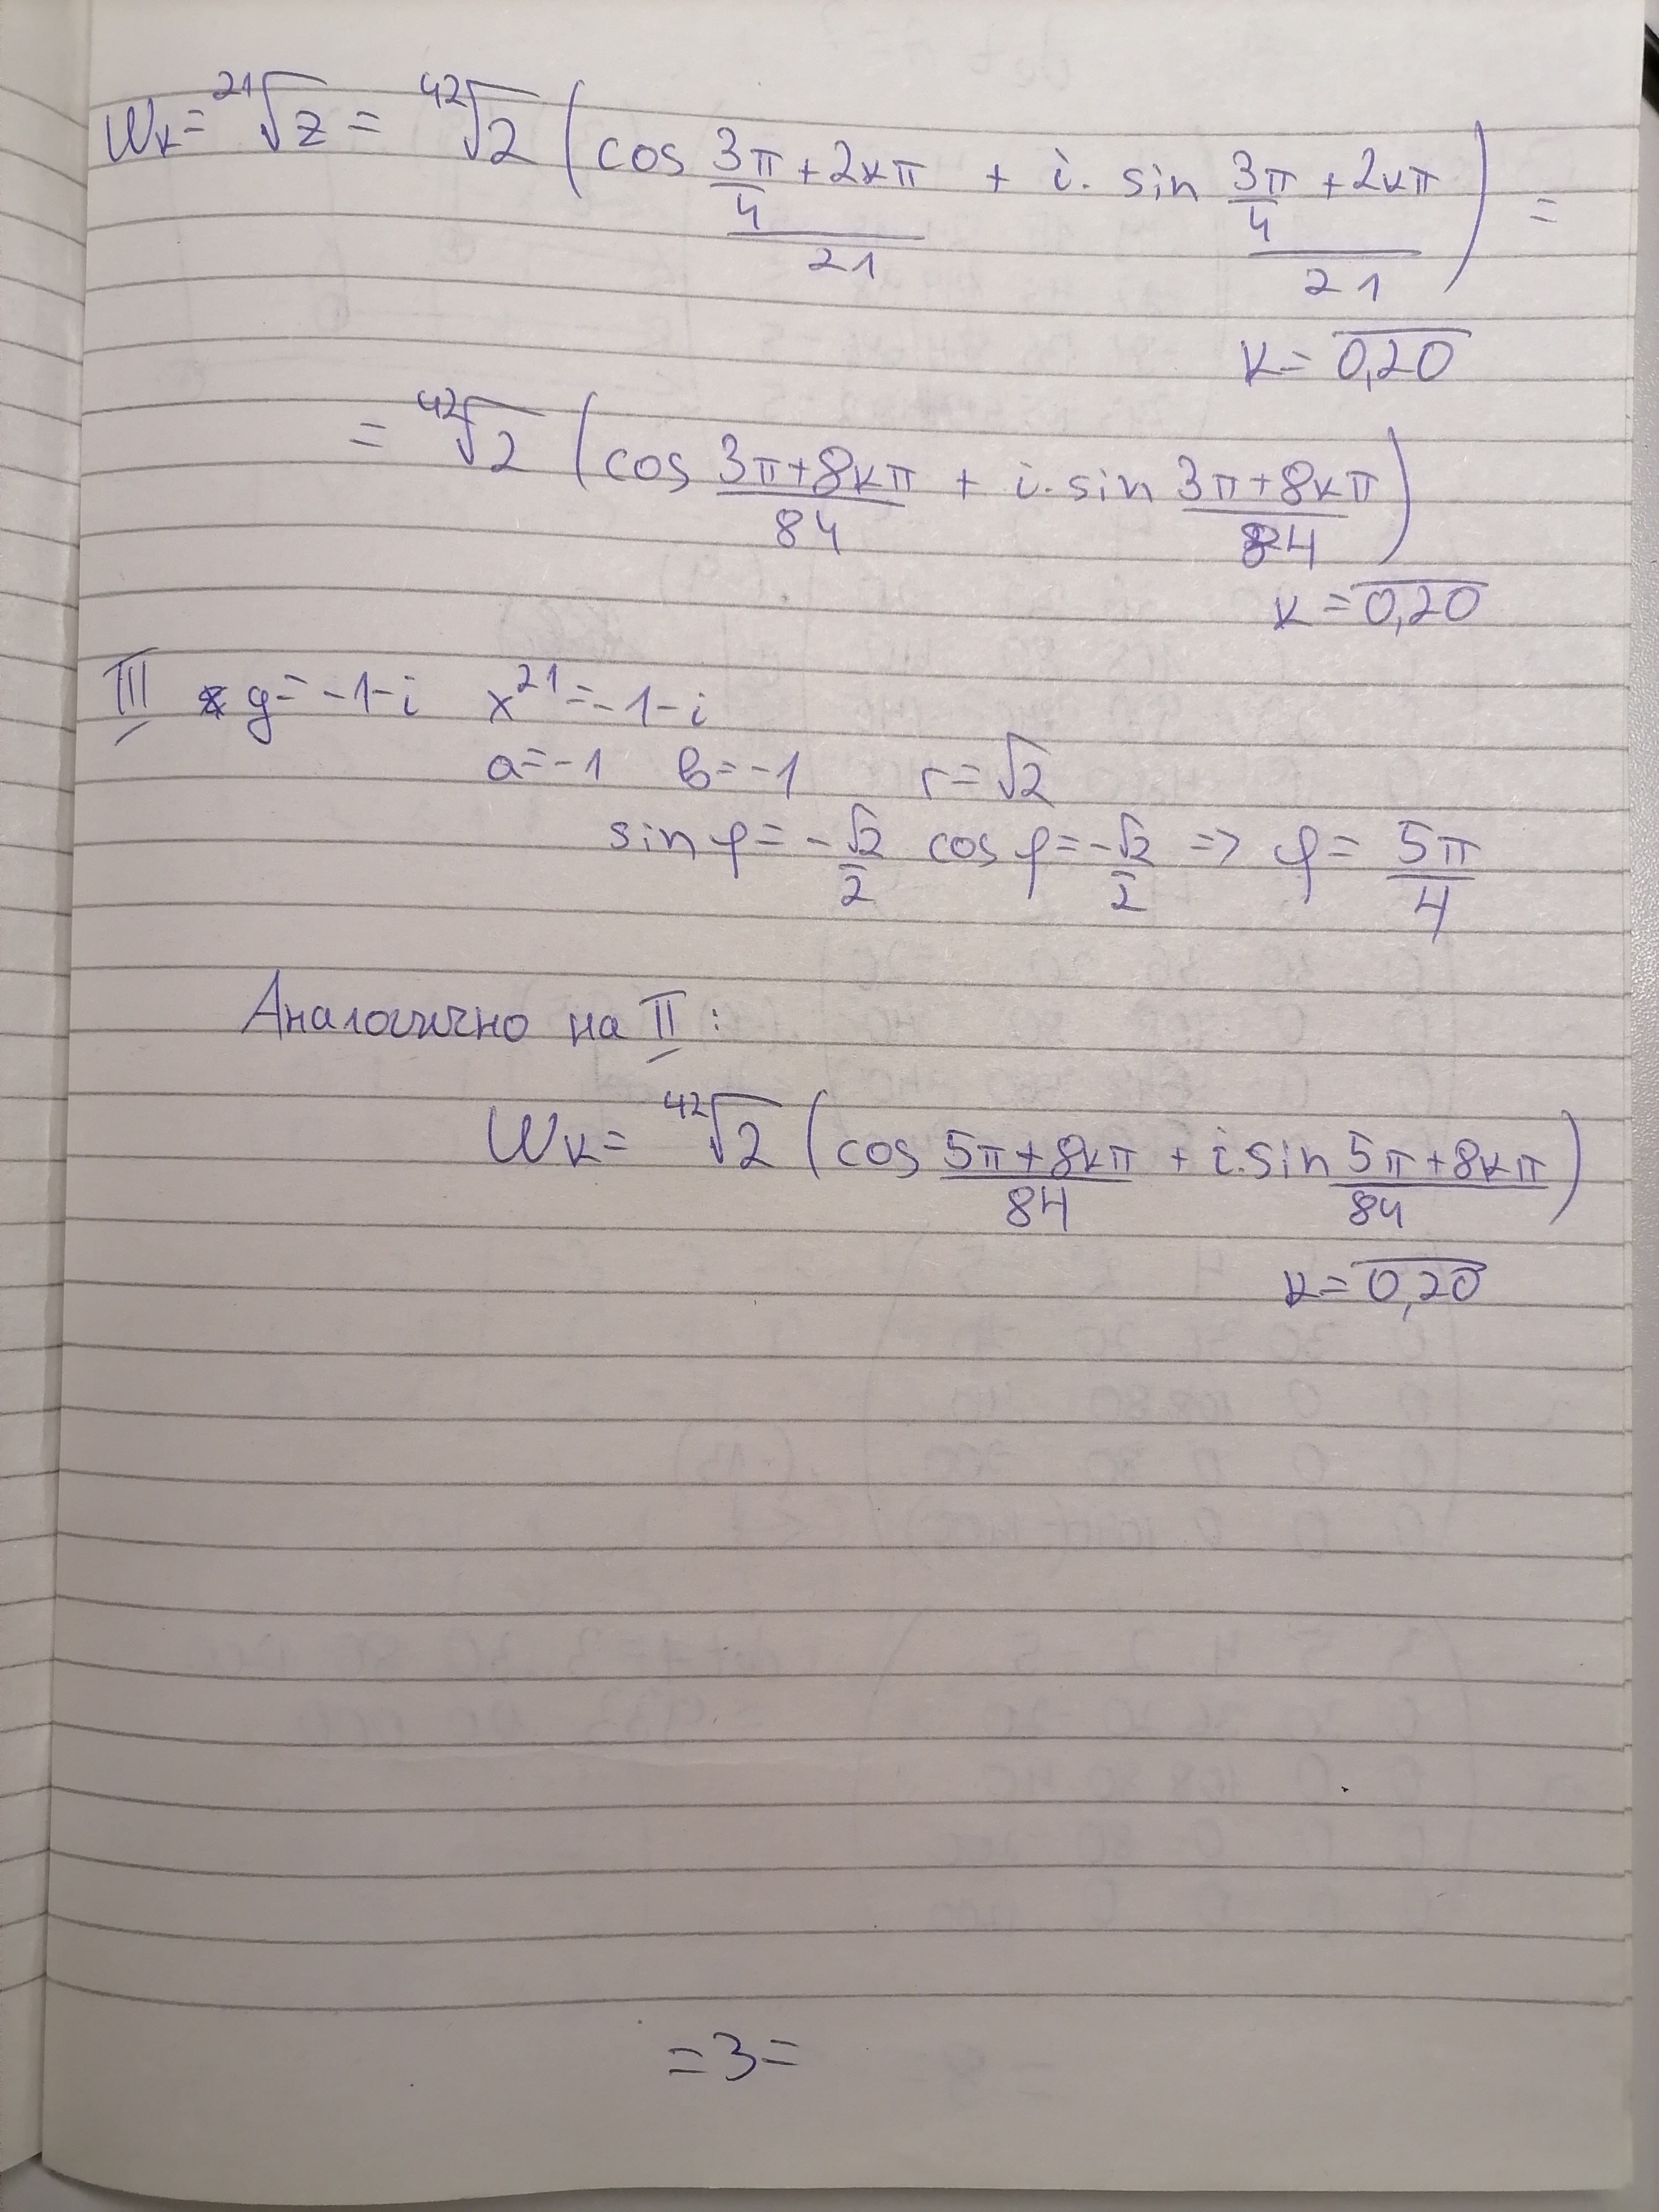 Wк = ²¹√z = ⁴²√2 (cos (3π/4 + 2кπ)/21 + i. sin (3π/4 + 2кπ)/21) =
к = 0,20
= ⁴²√2 (cos (3π+8кπ)/84 + i. sin (3π+8кπ)/84)
к = 0,20
III y = -1-i x²¹ = -1-i
a = -1 в = -1 r = √2
sin φ = -√2/2 cos φ = -√2/2 => φ = 5π/4
Аналогично на II :
Wк = ⁴²√2 (cos (5π+8кπ)/84 + i. sin (5π+8кπ)/84)
к = 0,20
=3=